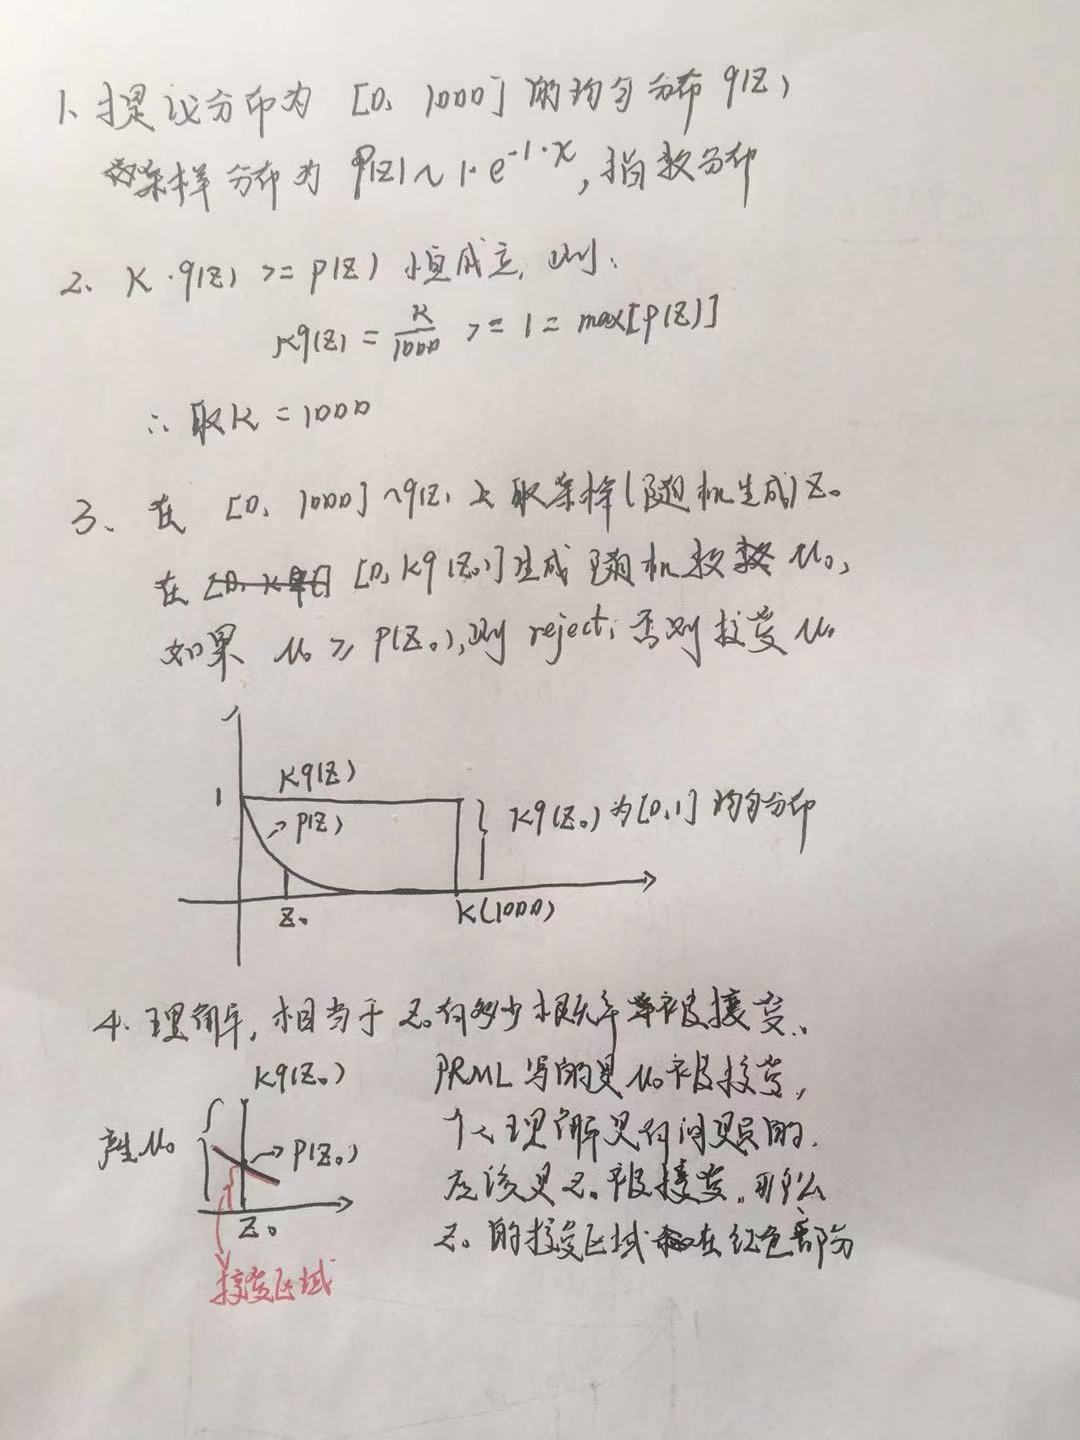 1、提议分布为 [0, 1000] 的均匀分布 q(z)
采样分布为 p(z)~1·e^{-1·x}, 指数分布
2、K·q(z) >= p(z) 恒成立, 则:
Kq(z) = K/1000 >= 1 = max[p(z)]
∴ 取K = 1000
3、在 [0, 1000] ~q(z) 上取采样(随机生成)z₀
在 [0, Kq(z₀)]生成随机数 u₀,
如果 u₀ ≥ p(z₀),则 reject; 否则接受 u₀
Kq(z)
1
p(z)
Kq(z₀) 为[0,1] 均匀分布
z₀
K(1000)
4. 理解, 相当于 z₀有多少概率被接受、
Kq(z₀)
PRML 写的是 u₀ 被接受,
产生u₀
p(z₀)
个人理解是有问题的.
应该是 z₀ 被接受。那么
z₀
z₀ 的接受区域在红色部分
接受区域